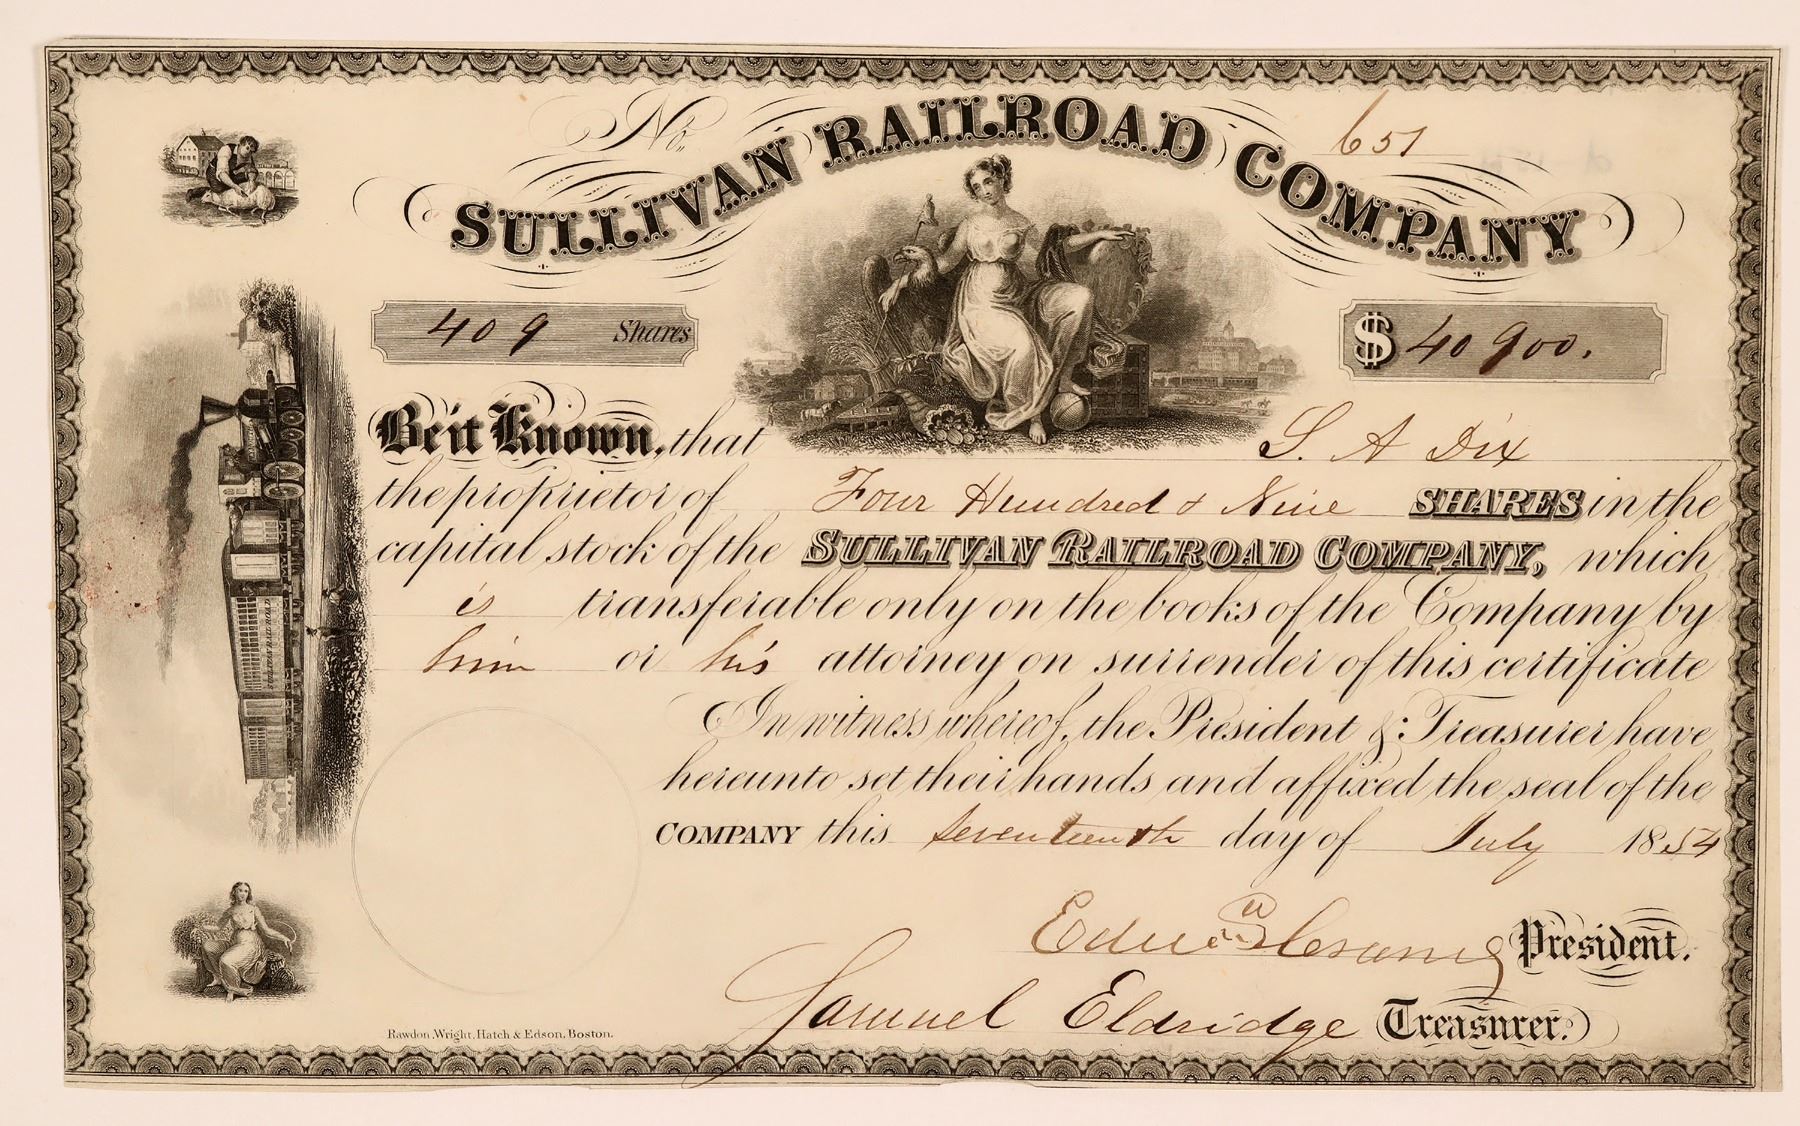 No. 651
SULLIVAN RAILROAD COMPANY
409 Shares
$ 40900.
Be it Known, that S. A Dix
the proprietor of Four Hundred & Nine SHARES in the
capital stock of the SULLIVAN RAILROAD COMPANY, which
is transferable only on the books of the Company by
him or his attorney on surrender of this certificate
In witness whereof, the President & Treasurer have
hereunto set their hands and affixed the seal of the
COMPANY this seventeenth day of July 1854
President.
Samuel Eldridge Treasurer.
Rawdon, Wright, Hatch & Edson, Boston.
SULLIVAN RAIL ROAD